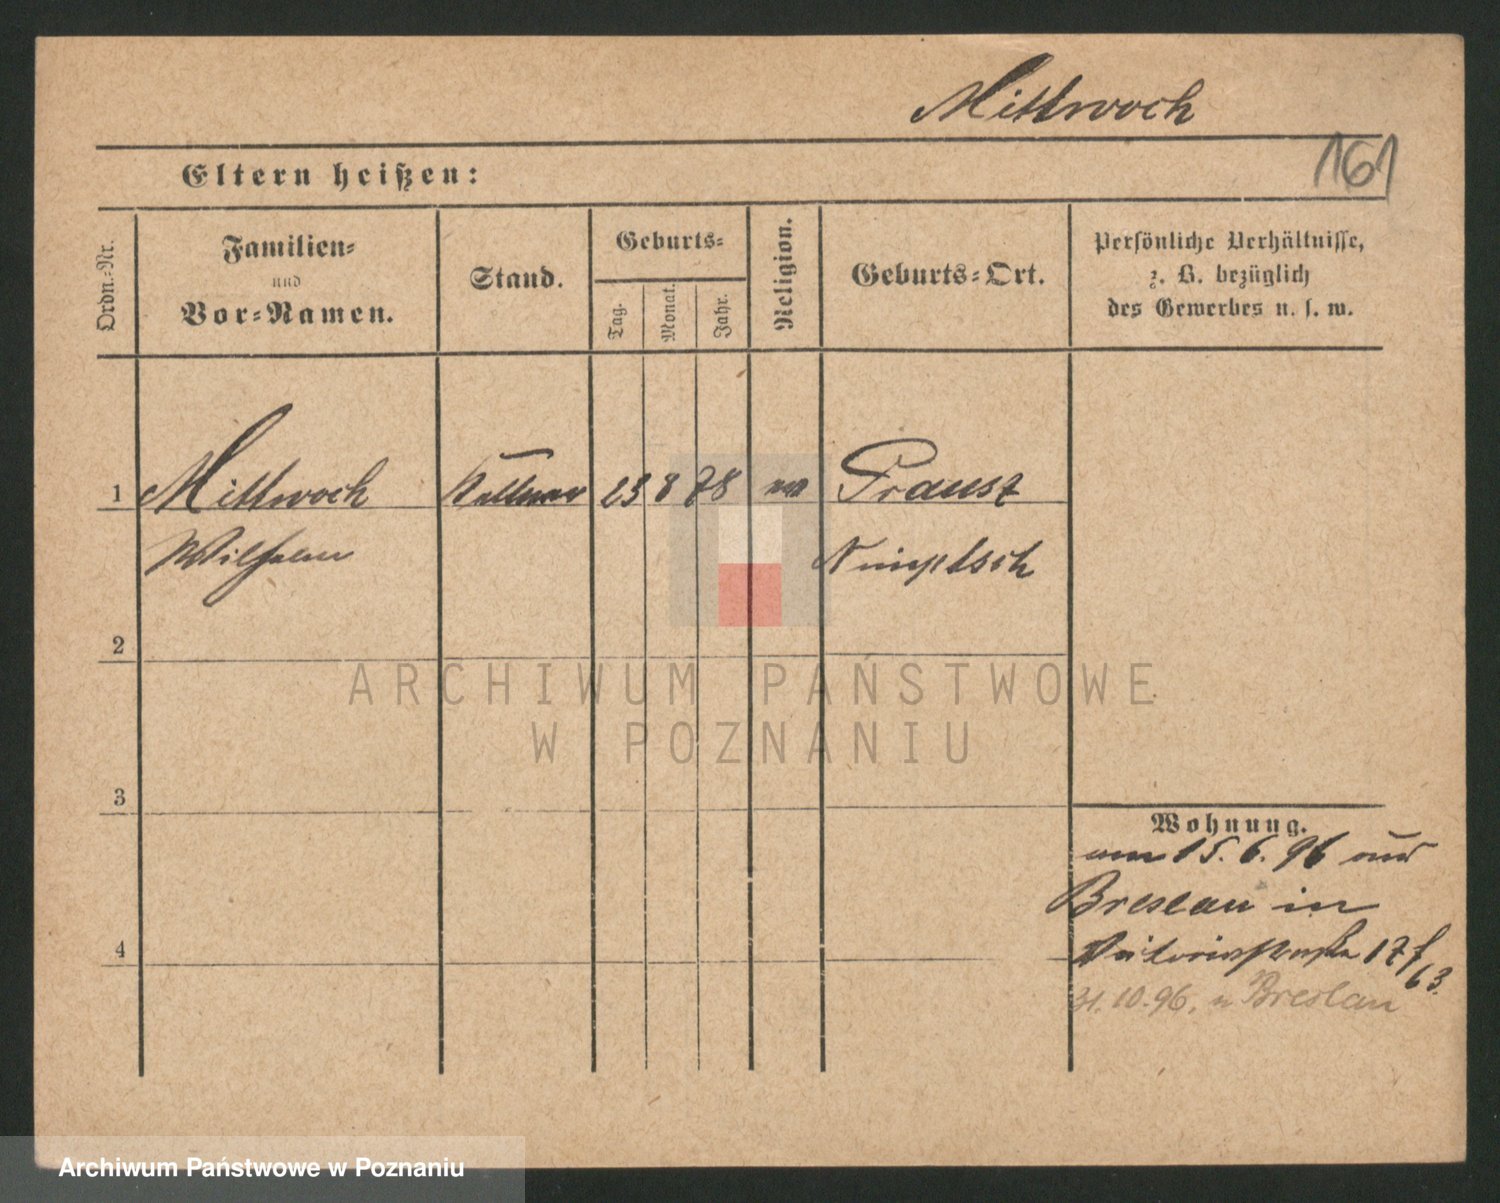 Mittwoch
161
Eltern heißen:
Ordn.-Nr.
Familien-
und
Vor-Namen.
Stand.
Geburts-
Tag.
Monat.
Jahr.
Religion.
Geburts-Ort.
Persönliche Verhältnisse,
z. B. bezüglich
des Gewerbes u. s. w.
1 Mittwoch Kellner 23 8 78 ev Praust
Wilhelm Nimptsch
2
3
4
Wohnung.
am 15. 6. 96 aus
Breslau in
Viktoriastraße 17 f/63.
31. 10. 96. n Breslau
ARCHIWUM PAŃSTWOWE
W POZNANIU
Archiwum Państwowe w Poznaniu